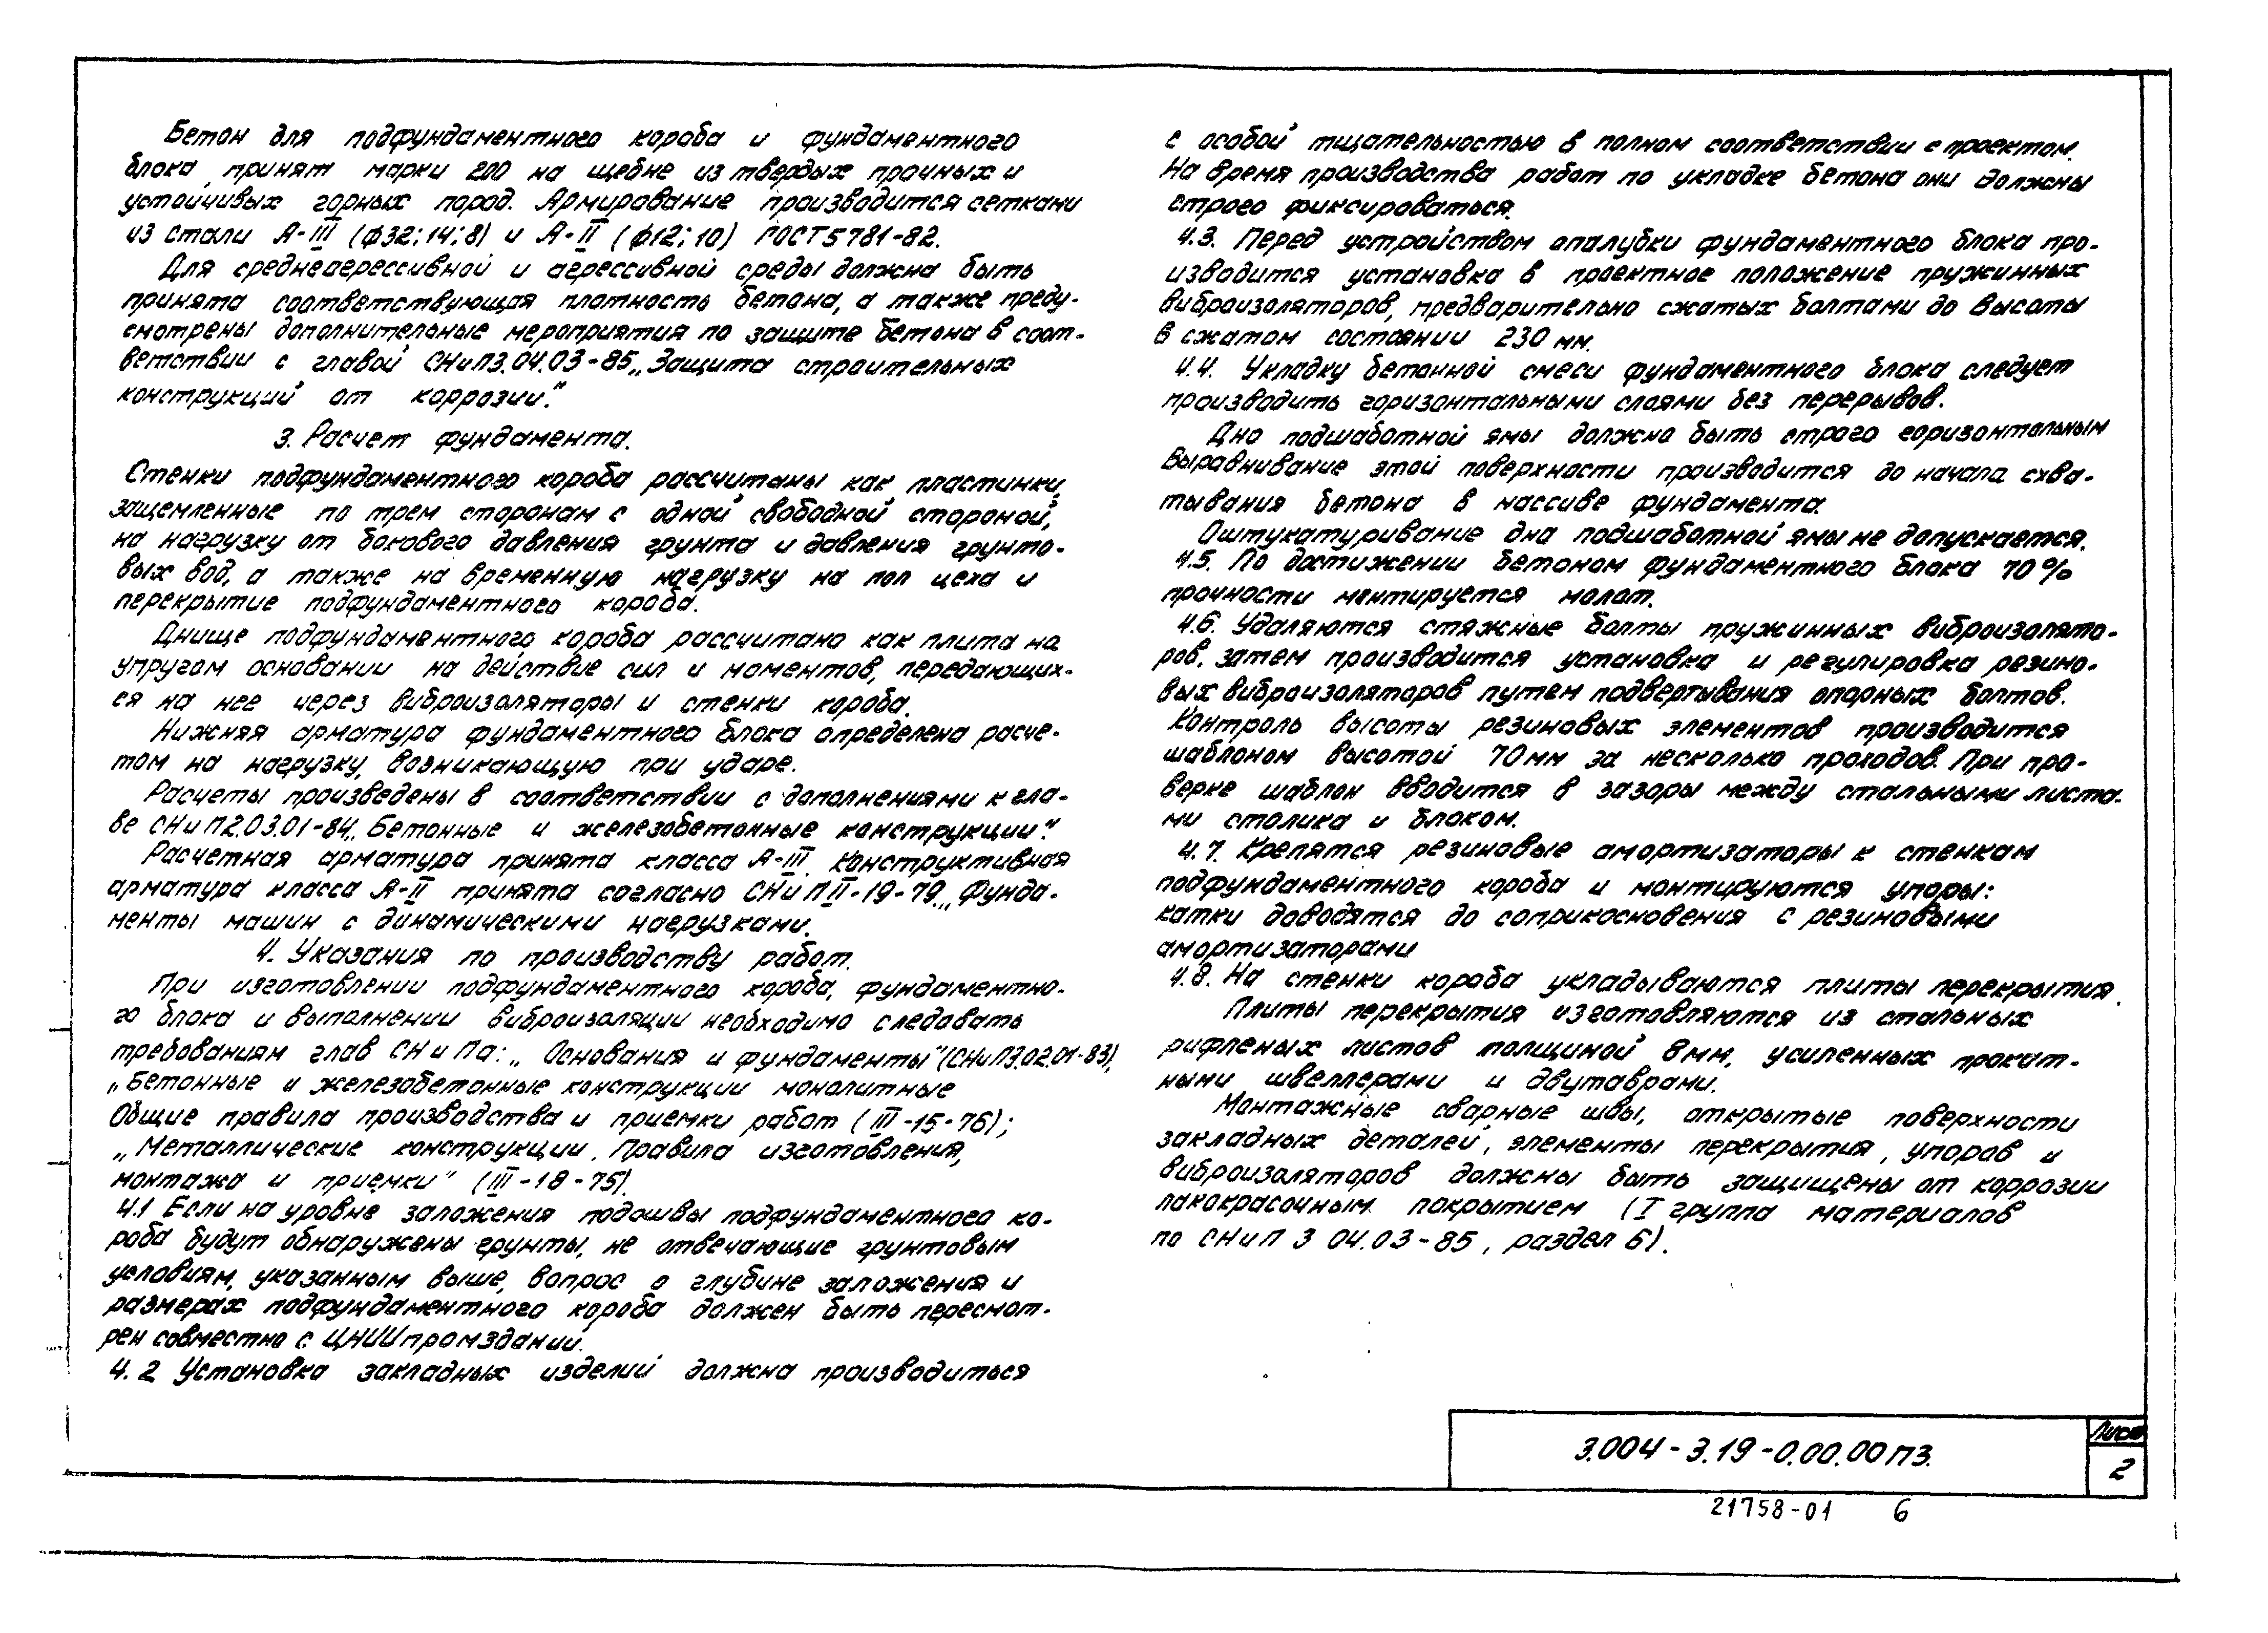 Бетон для подфундаментного короба и фундаментного
блока принят марки 200 на щебне из твердых прочных и
устойчивых горных пород. Армирование производится сетками
из стали А-III (ф32; 14; 8) и А-II (ф12; 10) ГОСТ 5781-82.
Для среднеагрессивной и агрессивной среды должна быть
принята соответствующая плотность бетона, а также преду-
смотрены дополнительные мероприятия по защите бетона в соот-
ветствии с главой СНиП3.04.03-85 „Защита строительных
конструкций от коррозии."
3. Расчет фундамента.
Стенки подфундаментного короба рассчитаны как пластинки,
защемленные по трем сторонам с одной свободной стороной,
на нагрузку от бокового давления грунта и давления грунто-
вых вод, а также на временную нагрузку на пол цеха и
перекрытие подфундаментного короба.
Днище подфундаментного короба рассчитано как плита на
упругом основании на действие сил и моментов, передающих-
ся на нее через виброизоляторы и стенки короба.
Нижняя арматура фундаментного блока определена расче-
том на нагрузку, возникающую при ударе.
Расчеты произведены в соответствии с дополнениями к гла-
ве СНиП2.03.01-84 „Бетонные и железобетонные конструкции."
Расчетная арматура принята класса А-III. Конструктивная
арматура класса А-II принята согласно СНиП II-19-79 „Фунда-
менты машин с динамическими нагрузками.
4. Указания по производству работ.
При изготовлении подфундаментного короба, фундаментно-
го блока и выполнении виброизоляции необходимо следовать
требованиям глав СНиПа: „Основания и фундаменты" (СНиП3.02.01-83),
„Бетонные и железобетонные конструкции монолитные
Общие правила производства и приемки работ (III-15-76);
„Металлические конструкции. Правила изготовления,
монтажа и приемки" (III-18-75).
4.1 Если на уровне заложения подошвы подфундаментного ко-
роба будут обнаружены грунты, не отвечающие грунтовым
условиям, указанным выше, вопрос о глубине заложения и
размерах подфундаментного короба должен быть пересмот-
рен совместно с ЦНИИпромзданий.
4.2 Установка закладных изделий должна производиться
с особой тщательностью в полном соответствии с проектом.
На время производства работ по укладке бетона они должны
строго фиксироваться.
4.3. Перед устройством опалубки фундаментного блока про-
изводится установка в проектное положение пружинных
виброизоляторов, предварительно сжатых болтами до высоты
в сжатом состоянии 230 мм.
4.4. Укладку бетонной смеси фундаментного блока следует
производить горизонтальными слоями без перерывов.
Дно подшаботной ямы должно быть строго горизонтальным
Выравнивание этой поверхности производится до начала схва-
тывания бетона в массиве фундамента.
Оштукатуривание дна подшаботной ямы не допускается.
4.5. По достижении бетоном фундаментного блока 70%
прочности монтируется молот.
4.6. Удаляются стяжные болты пружинных виброизолято-
ров, затем производится установка и регулировка резино-
вых виброизоляторов путем подвертывания опорных болтов.
Контроль высоты резиновых элементов производится
шаблоном высотой 70мм за несколько проходов. При про-
верке шаблон вводится в зазоры между стальными листа-
ми столика и блоком.
4.7. Крепятся резиновые амортизаторы к стенкам
подфундаментного короба и монтируются упоры:
катки доводятся до соприкосновения с резиновыми
амортизаторами
4.8. На стенки короба укладываются плиты перекрытия.
Плиты перекрытия изготовляются из стальных
рифленых листов толщиной 8мм, усиленных прокат-
ными швеллерами и двутаврами.
Монтажные сварные швы, открытые поверхности
закладных деталей, элементы перекрытия, упоров и
виброизоляторов должны быть защищены от коррозии
лакокрасочным покрытием (I группа материалов
по СНиП 3 04.03-85, раздел 6).
3.004-3.19-0.00.00ПЗ.
Лист
2
21758-01 6